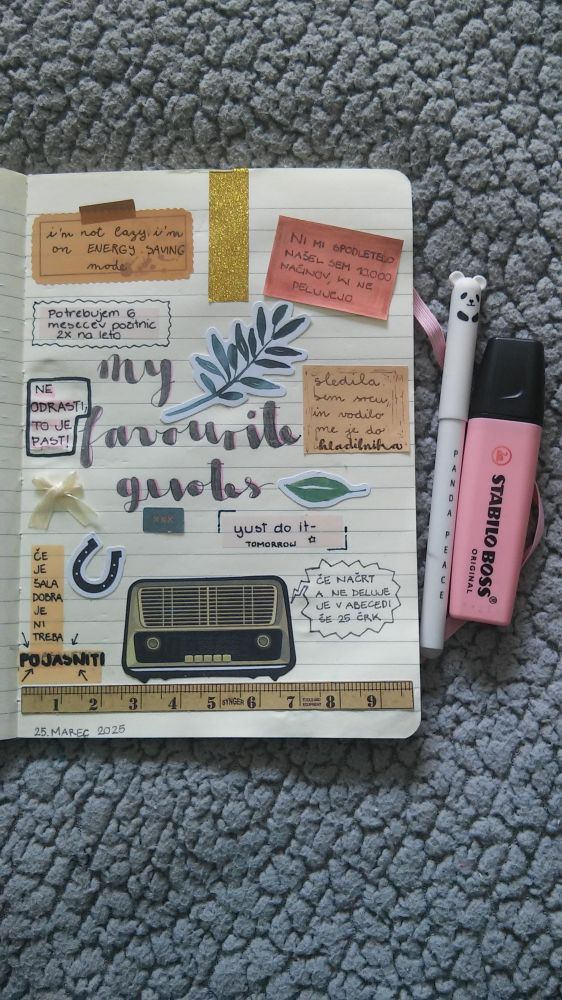 i'm not lazy, i'm
on ENERGY SAVING
mode
NI MI SPODLETELO
NAŠEL SEM 10.000
NAČINOV, KI NE
DELUJEJO
Potrebujem 6
mesecev počitnic
2x na leto
my
favourite
quotes
NE
ODRASTI,
TO JE
PAST!
sledila
sem srcu,
in vodilo
me je do
hladilnika
xxx
yust do it-
TOMORROW
ČE
JE
ŠALA
DOBRA
JE
NI
TREBA
POJASNITI
ČE NAČRT
A NE DELUJE
JE V ABECEDI
ŠE 25 ČRK
1 2 3 4 5 SYNGER 6 7 8 9
25. MAREC 2025
PANDA PEACE
STABILO BOSS
ORIGINAL